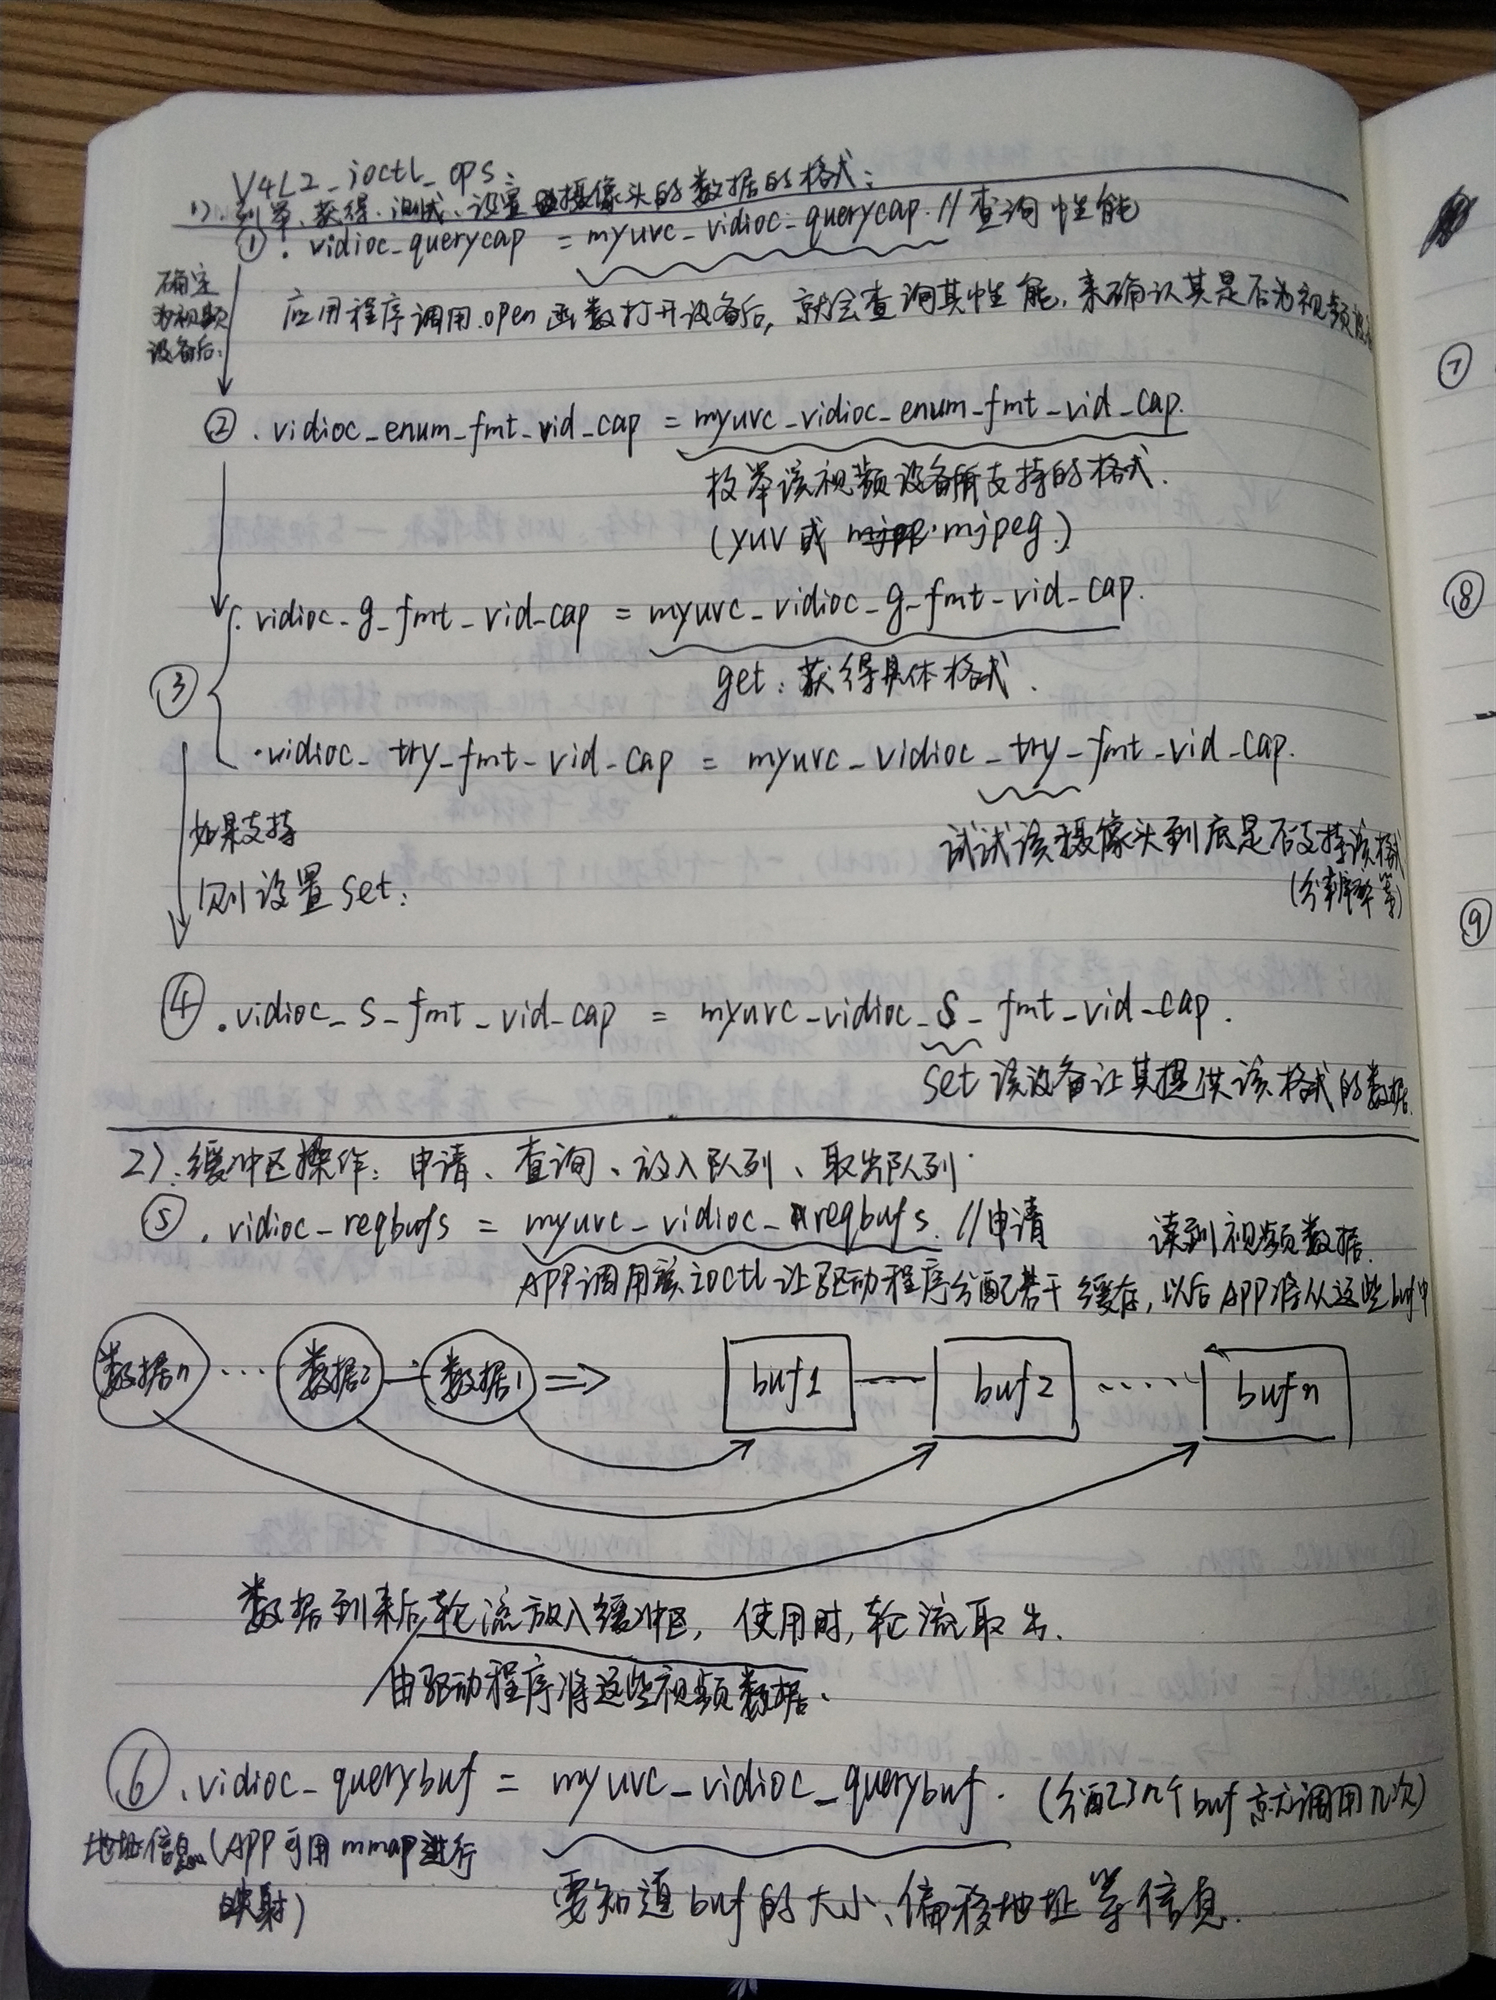 V4L2_ioctl_ops:
1). 列举、获得、测试、设置摄像头的数据的格式:
① . vidioc_querycap = myuvc_vidioc_querycap. // 查询性能
确定
为视频
设备后:
应用程序调用.open函数打开设备后, 就会查询其性能, 来确认其是否为视频设备
② . vidioc_enum_fmt_vid_cap = myuvc_vidioc_enum_fmt_vid_cap.
枚举该视频设备所支持的格式.
(yuv 或 mjpeg.)
③
. vidioc_g_fmt_vid_cap = myuvc_vidioc_g_fmt_vid_cap.
get: 获得具体格式.
. vidioc_try_fmt_vid_cap = myuvc_vidioc_try_fmt_vid_cap.
如果支持
则设置set:
试试该摄像头到底是否支持该格式
(分辨率等)
④ . vidioc_s_fmt_vid_cap = myuvc_vidioc_s_fmt_vid_cap.
set 该设备让其提供该格式的数据.
2). 缓冲区操作: 申请、查询、放入队列、取出队列.
⑤ . vidioc_reqbufs = myuvc_vidioc_reqbufs. // 申请
读到视频数据.
APP调用该ioctl让驱动程序分配若干缓存, 以后APP将从这些buf中
数据n … 数据2 数据1 ⇒ buf1 buf2 …… bufn
数据到来后轮流放入缓冲区, 使用时, 轮流取出.
由驱动程序将这些视频数据.
⑥ . vidioc_querybuf = myuvc_vidioc_querybuf. (分配了几个buf就调用几次)
地址信息 (APP可用mmap进行
映射)
要知道buf的大小、偏移地址等信息.
⑦
⑧
⑨